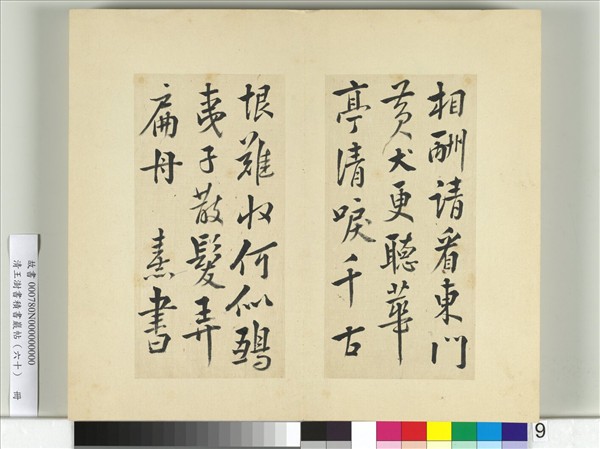 相酬請看東門
黃犬更聽華
亭清唳千古
恨難收何似鴟
夷子散髮弄
扁舟 熹書
故書 000780N000000000
清王澍書積書巖帖(六十) 冊
9